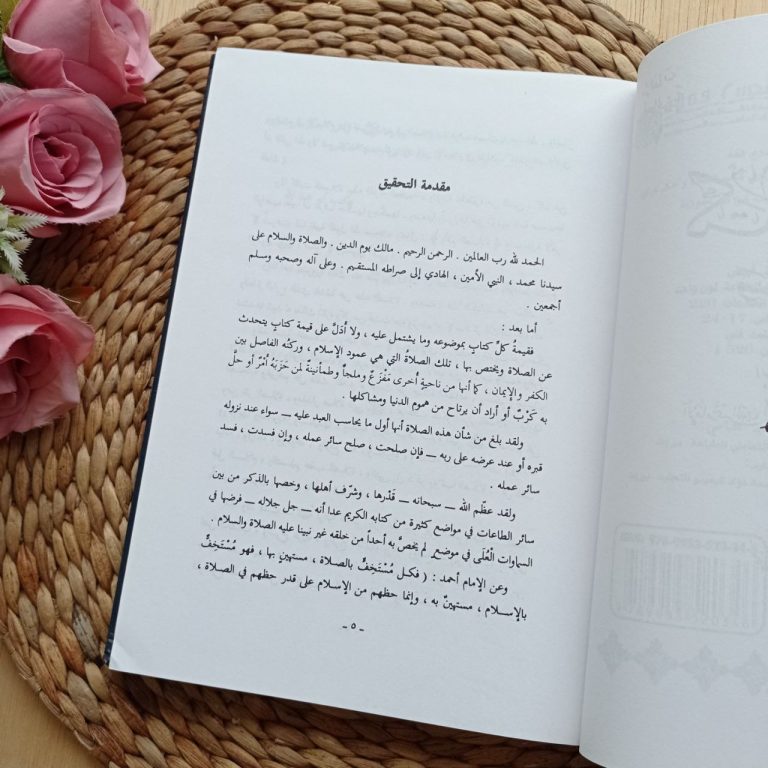 مقدمة التحقيق
الحمد لله رب العالمين . الرحمن الرحيم . مالك يوم الدين . والصلاة والسلام على
سيدنا محمد ، النبي الأمين ، الهادي إلى صراطه المستقيم . وعلى آله وصحبه وسلم
أجمعين .
أما بعد :
فقيمةُ كلِّ كتابٍ بموضوعه وما يشتمل عليه ، ولا أدَلَّ على قيمة كتابٍ يتحدث
عن الصلاة ويختص بها ، تلك الصلاةُ التي هي عمود الإسلام ، وركنُه الفاصل بين
الكفر والإيمان ، كما أنها من ناحيةٍ أخرى مَفْزَعٌ وملجأٌ وطمأنينةٌ لمن حَزَبَهُ أمْرٌ أو حلَّ
به كَرْبٌ أو أراد أن يرتاح من هموم الدنيا ومشاكلها .
ولقد بلغ من شأن هذه الصلاة أنها أول ما يحاسب العبد عليه ــ سواء عند نزوله
قبره أو عند عرضه على ربه ــ فإن صلحت ، صلح سائر عمله ، وإن فسدت ، فسد
سائر عمله .
ولقد عظّم الله ــ سبحانه ــ قدْرها ، وشرّف أهلها ، وخصها بالذكر من بين
سائر الطاعات في مواضع كثيرة من كتابه الكريم عدا أنه ــ جل جلاله ــ فرضها في
السماوات الْعُلَى في موضعٍ لم يخصَّ به أحداً من خلقه غير نبينا عليه الصلاة والسلام .
وعن الإمام أحمد : ( فكل مُسْتَخِفٌّ بالصلاة ، مستهينٍ بها ، فهو مُسْتَخِفٌّ
بالإسلام ، مستهينٌ به ، وإنما حظهم من الإسلام على قدر حظهم في الصلاة ،
ــ ٥ ــ